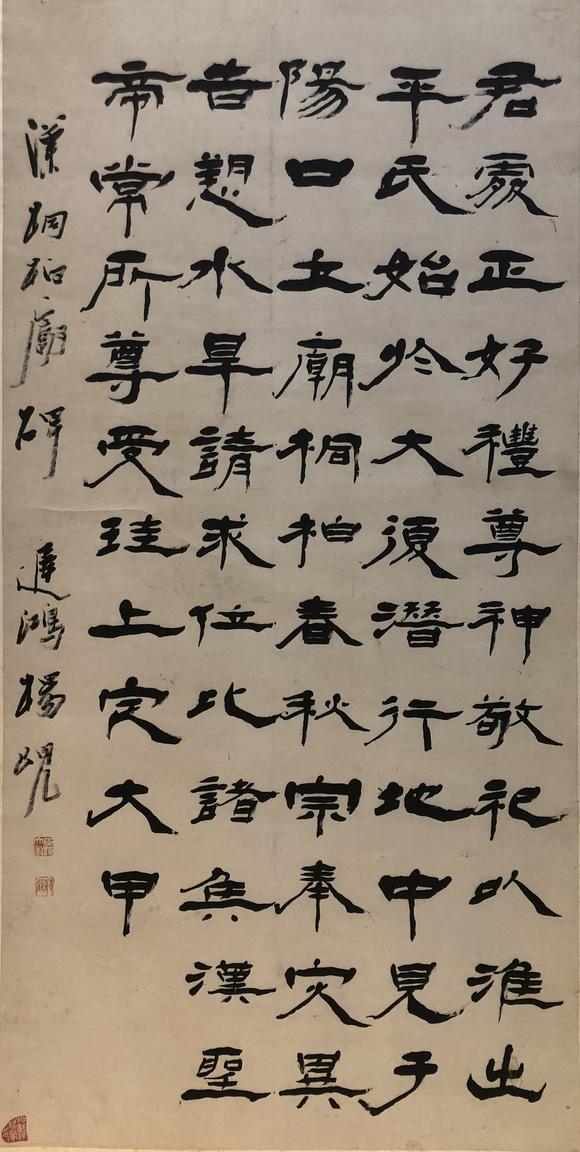 君處正好禮尊神敬祀以淮出
平氏始於大復潛行地中見于
陽口立廟桐柏春秋宗奉灾異
告愬水旱請求位比諸矦漢聖
帝常所尊受珪上定大甲
漢桐柏廟碑 遲鴻楊峴